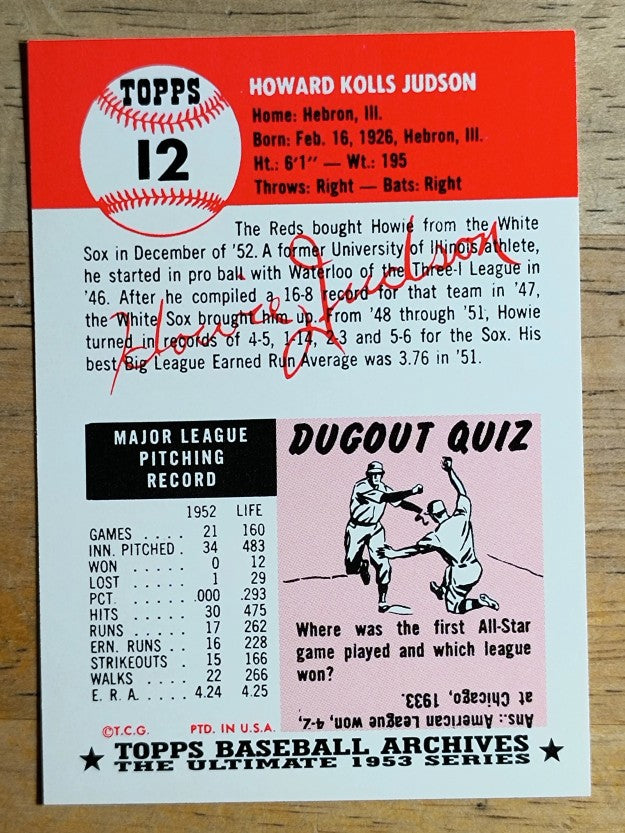 TOPPS
12
HOWARD KOLLS JUDSON
Home: Hebron, Ill.
Born: Feb. 16, 1926, Hebron, Ill.
Ht.: 6'1" — Wt.: 195
Throws: Right — Bats: Right
The Reds bought Howie from the White
Sox in December of '52. A former University of Illinois athlete,
he started in pro ball with Waterloo of the Three-I League in
'46. After he compiled a 16-8 record for that team in '47,
the White Sox brought him up. From '48 through '51, Howie
turned in records of 4-5, 1-14, 2-3 and 5-6 for the Sox. His
best Big League Earned Run Average was 3.76 in '51.
Howie Judson
MAJOR LEAGUE
PITCHING
RECORD
1952 LIFE
GAMES . . . . 21 160
INN. PITCHED . 34 483
WON . . . . . 0 12
LOST . . . . . 1 29
PCT. . . . . . .000 .293
HITS . . . . . 30 475
RUNS . . . . . 17 262
ERN. RUNS . . 16 228
STRIKEOUTS . 15 166
WALKS . . . . 22 266
E. R. A. . . . . 4.24 4.25
DUGOUT QUIZ
Where was the first All-Star
game played and which league
won?
Ans.: American League won, 4-2,
at Chicago, 1933.
©T.C.G. PTD. IN U.S.A.
★ TOPPS BASEBALL ARCHIVES ★
THE ULTIMATE 1953 SERIES